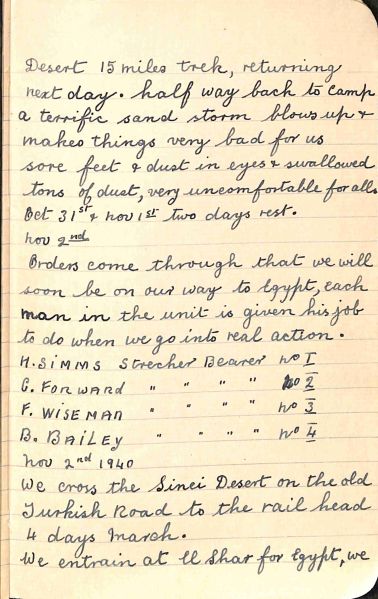 Desert 15 miles trek, returning
next day. half way back to camp
a terrific sand storm blows up &
makes things very bad for us
sore feet & dust in eyes & swallowed
tons of dust, very uncomfortable for all.
Oct 31st & nov 1st two days rest.
nov 2nd
Orders come through that we will
soon be on our way to Egypt, each
man in the unit is given his job
to do when we go into real action.
H. SIMMS Strecher Bearer no I
C. FORWARD " " " " no 2
F. WISEMAN " " " " no 3
B. BAILEY " " " " no 4
nov 2nd 1940
We cross the Sinei Desert on the old
Turkish Road to the rail head
4 days march.
We entrain at El Shar for Egypt, we